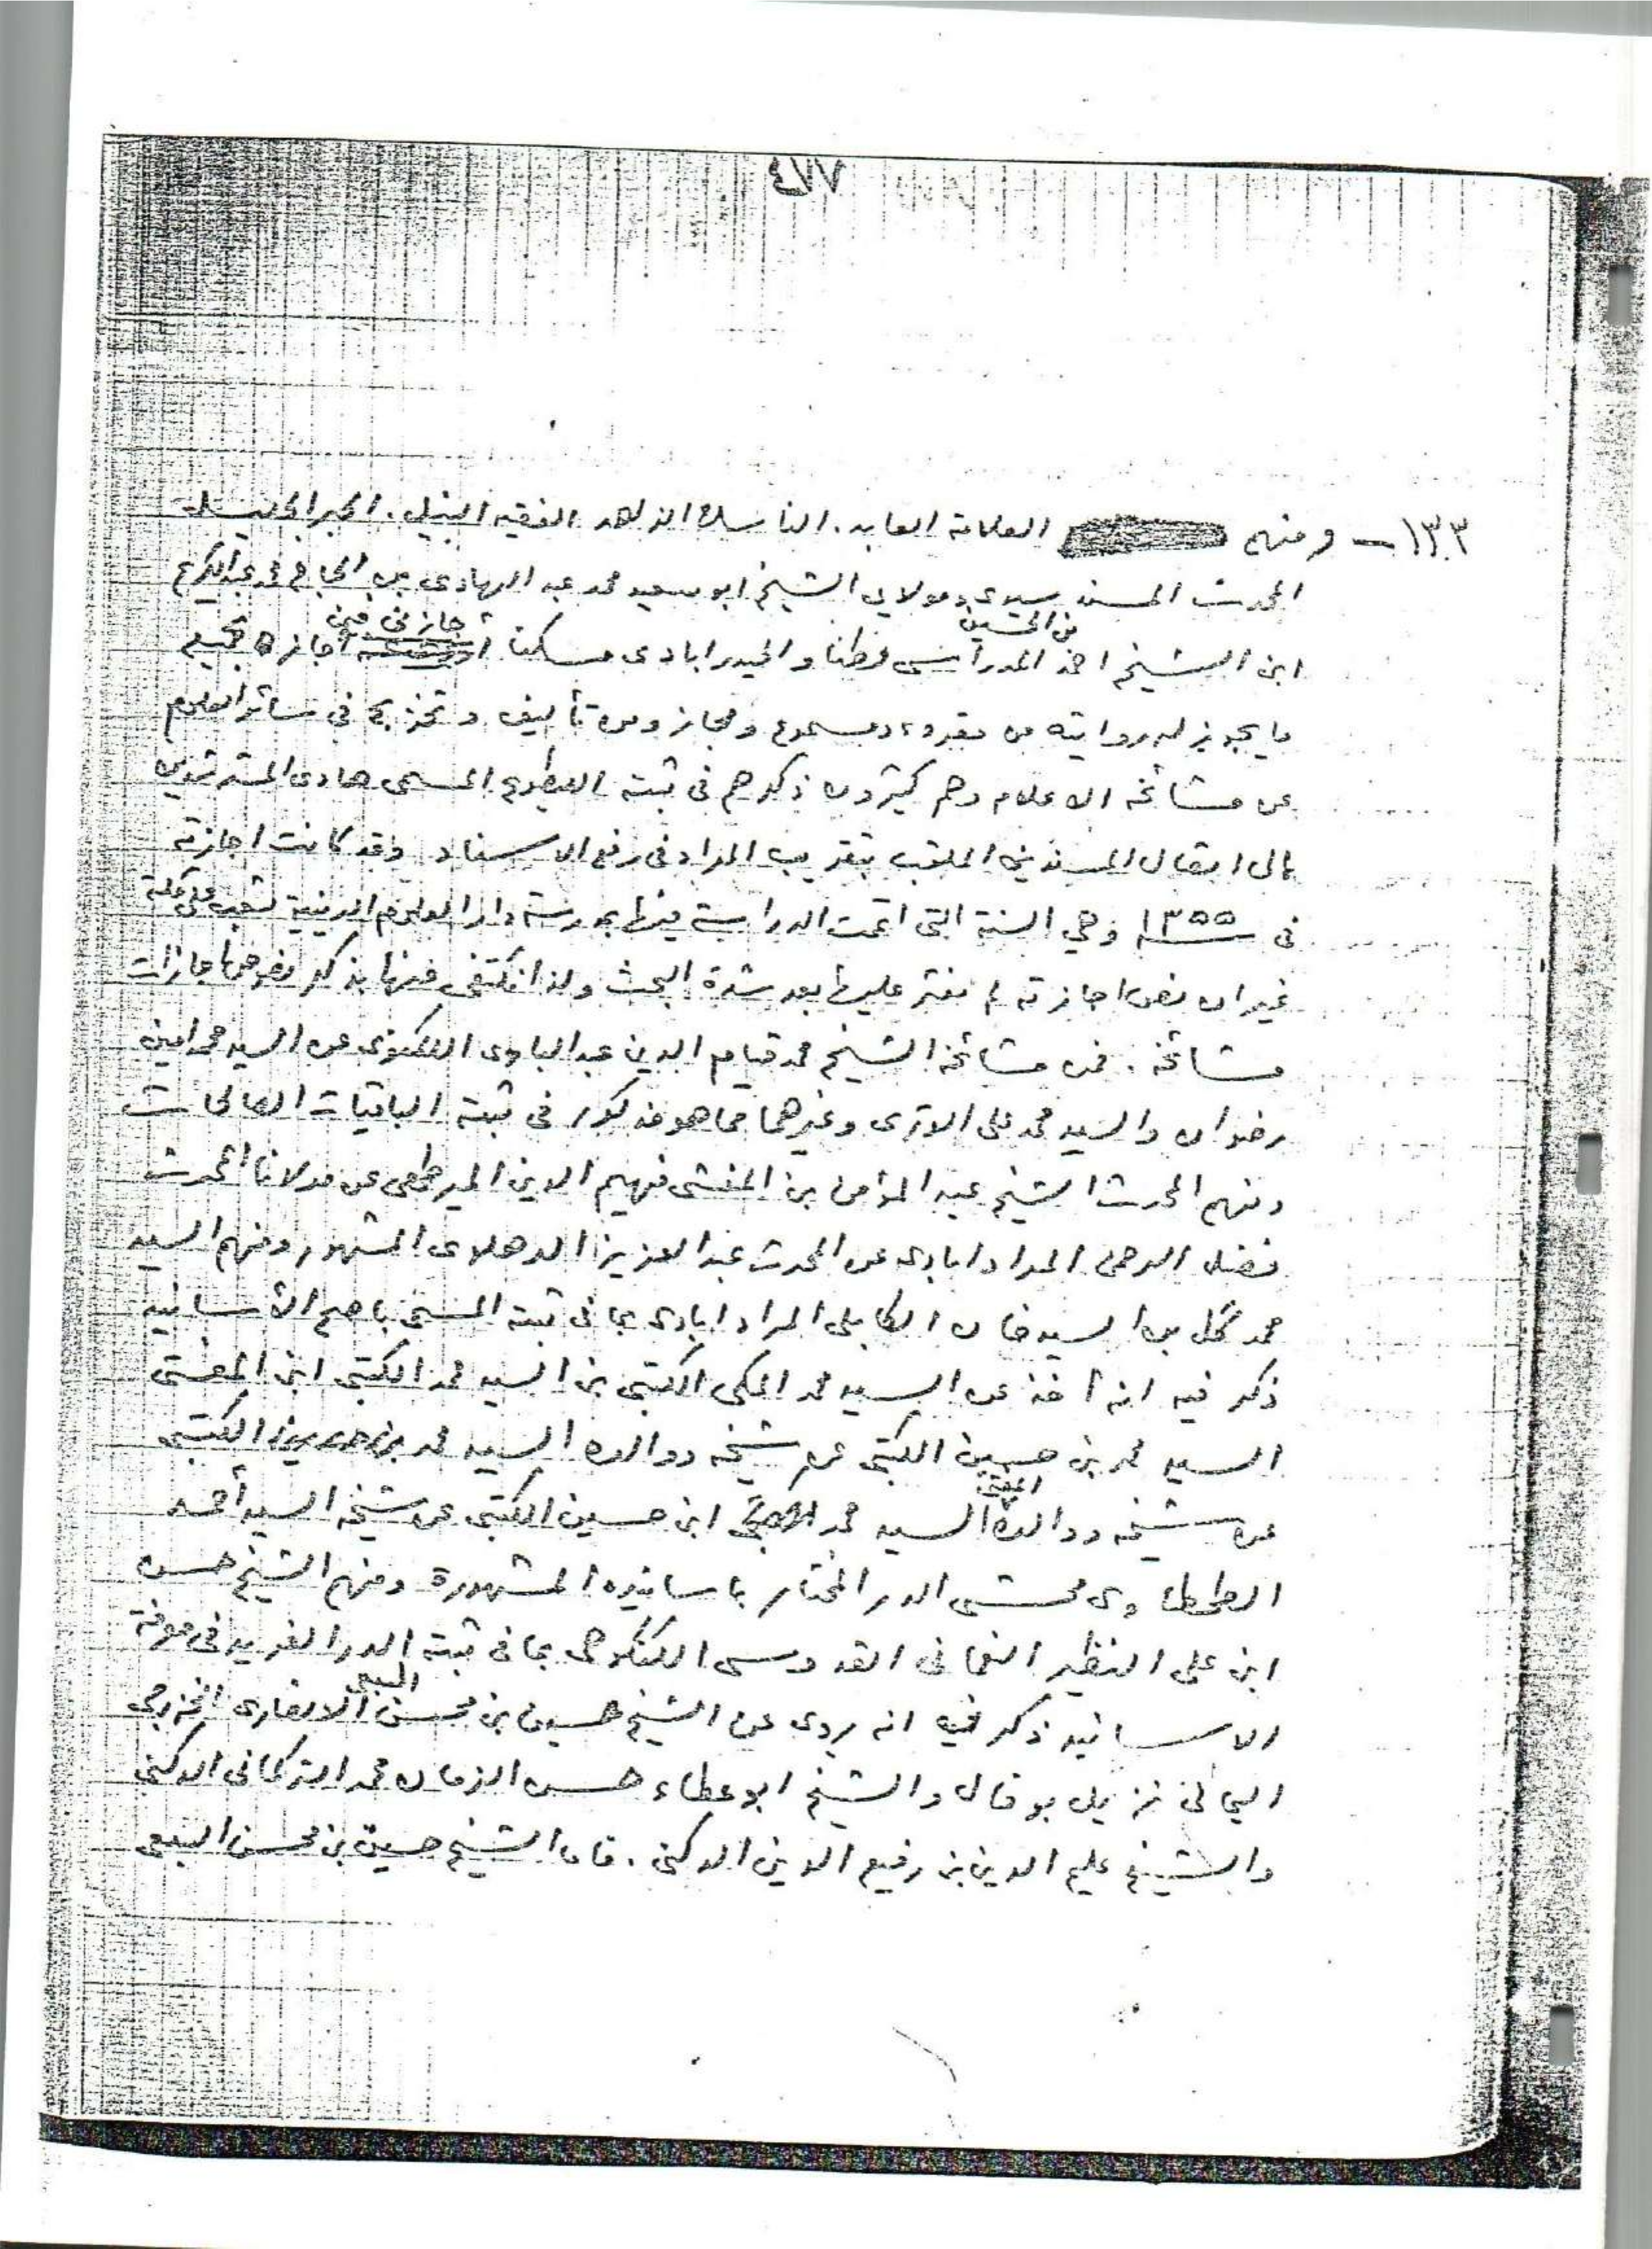 ٤٧٧
١٣٣ – ومنهم العلامة العابد. الناسك الزاهد الفقيه النبيل. الحبر الجليل
المحدث المسند سيدى ومولاي الشيخ ابو سعيد محمد عبد الهادى بن الحاج محمد عبد الكريم
بن الحسين جازنى فيها
ابن الشيخ احمد المدراسى وطنا والحيدرابادى مسكنا اجازة بجميع
ما يجوز له روايته من مقروء ومسموع ومجاز ومن تأليف وتخريج فى سائر العلوم
عن مشائخه الاعلام وهم كثيرون ذكرهم فى ثبته المطبوع المسمى هادى المسترشدين
الى اتصال المسندين الملقب بتقريب المراد فى رفع الاسناد وقد كانت اجازته
فى ١٣٥٥ وهي السنة التى اتممت الدراسة فيها بمدرسة دار العلوم الدينية بشعب على بمكة
غير ان نص اجازته لم نعثر عليها بعد شدة البحث ولذا نكتفى فيها بذكر نصوص اجازات
مشائخه. فمن مشائخه الشيخ محمد قيام الدين عبد البارى اللكنوى عن السيد محمد امين
رضوان والسيد محمد على الوترى وغيرهما مما هو مذكور فى ثبته الباقيات الصالحات
ومنهم المحدث الشيخ عبد المؤمن بن المنشى فهيم الدين الميرطهى عن مولانا المحدث
فضل الرحمن المرادابادى عن المحدث عبد العزيز الدهلوى المشهور ومنهم السيد
محمد گل بن السيد خان الكابلى المرادابادى بما فى ثبته المسمى باصح الأسانيد
ذكر فيه انه أخذ عن السيد محمد المكى الكتبى بن السيد محمد الكتبى ابن المفتى
السيد محمد بن حسين الكتبى عن شيخه ووالده السيد محمد بن حسين الكتبى
المفتى
عن شيخه ووالده السيد محمد ابن حسين الكتبى عن شيخه السيد أحمد
الطحطاوى محشى الدر المختار باسانيده المشهورة ومنهم الشيخ حسن
ابن على النظير النعمانى القدوسى الكنكوهى بما فى ثبته الدر الفريد فى معرفة
السبعى
الاسانيد ذكر فيه انه يروى عن الشيخ حسين بن محسن الانصارى الخزرجى
اليمانى نزيل بوفال والشيخ ابو عطاء حسن الزمان محمد التركمانى الدكنى
والشيخ عليم الدين بن رفيع الدين الدكنى. فاما الشيخ حسين بن محسن السبعى